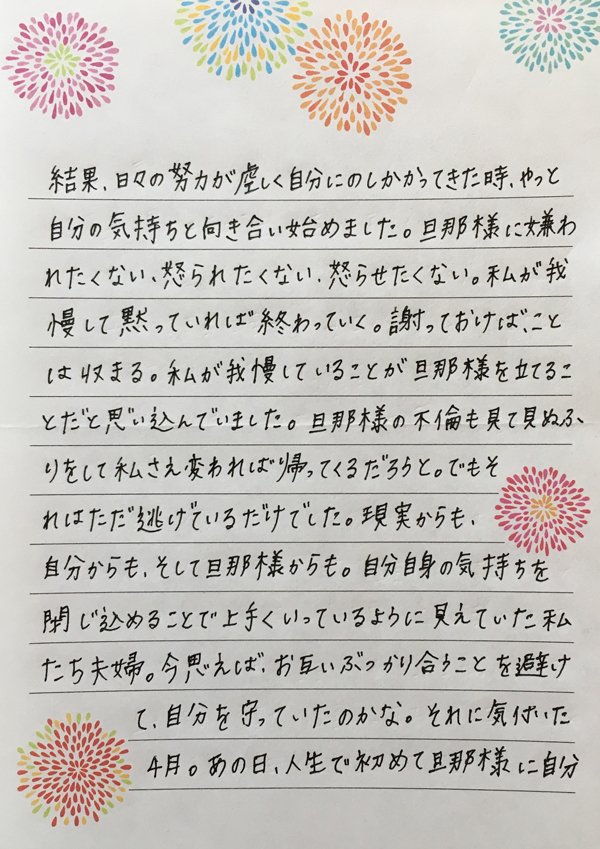 結果、日々の努力が虚しく自分にのしかかってきた時、やっと
自分の気持ちと向き合い始めました。旦那様に嫌わ
れたくない、怒られたくない、怒らせたくない。私が我
慢して黙っていれば終わっていく。謝っておけば、こと
は収まる。私が我慢していることが旦那様を立てるこ
とだと思い込んでいました。旦那様の不倫も見て見ぬふ
りをして私さえ変われば帰ってくるだろうと。でもそ
れはただ逃げているだけでした。現実からも、
自分からも、そして旦那様からも。自分自身の気持ちを
閉じ込めることで上手くいっているように見えていた私
たち夫婦。今思えば、お互いぶつかり合うことを避け
て、自分を守っていたのかな。それに気付いた
4月。あの日、人生で初めて旦那様に自分